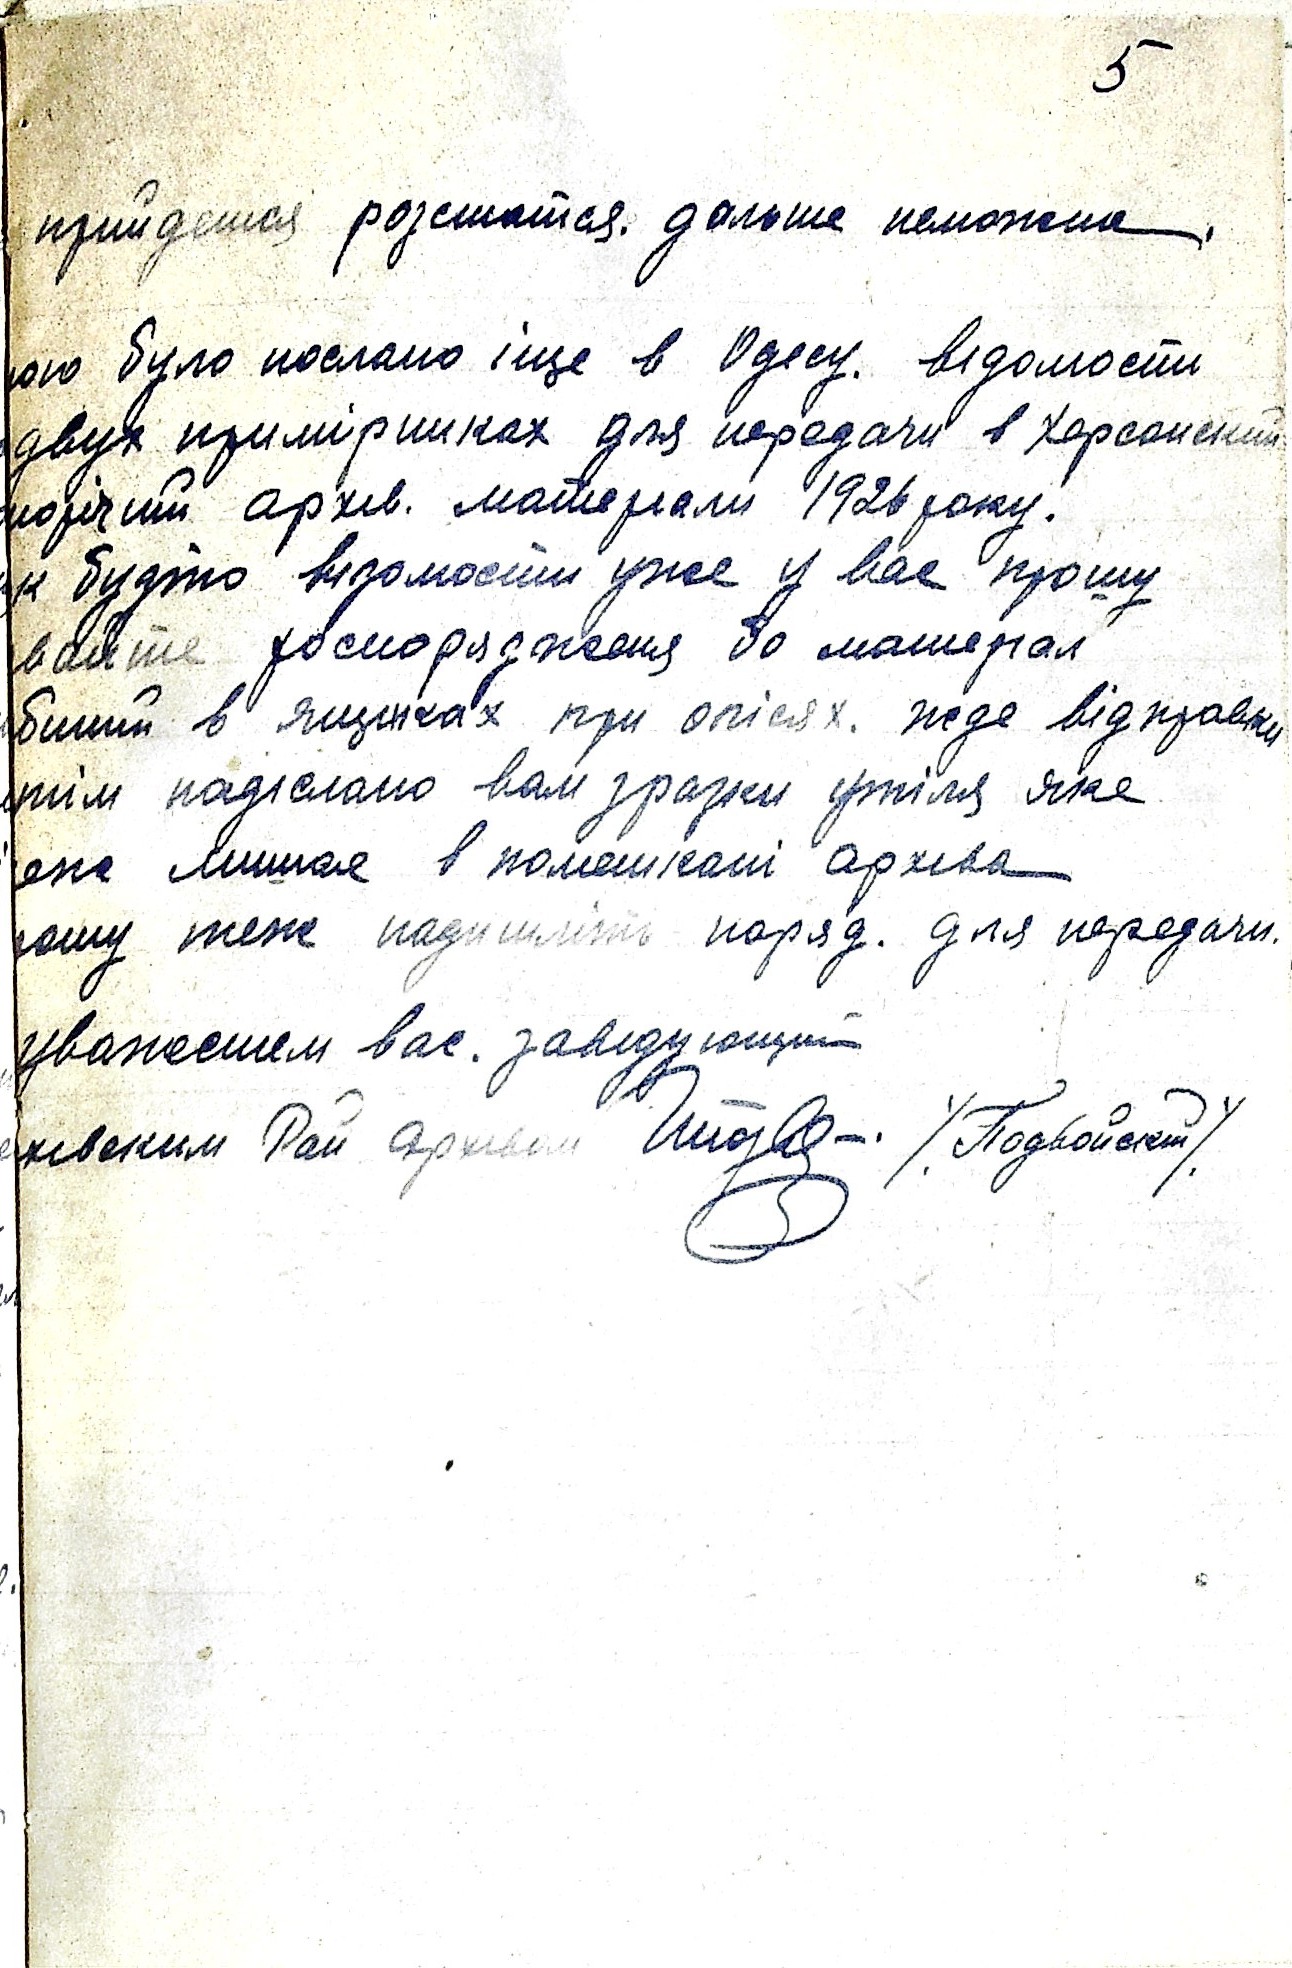 5
прийдется розститатся. дальше неможна.
ою було послано іще в Одесу. відомости
двух примірниках для передачи в Херсонский
торічий архів. матеріали 1926 року.
к будто відомости уже у вас прошу
вайте роспорядженя бо матеріал
битий в ящиках при опісях. жде відправки
тім надіслано вам зразки уміля яке
еже лишає в помешкані архива
ошу теж надишліть наряд. для передачи.
уважением вас. заведующий
хівским Рай архивом /Подвойский/